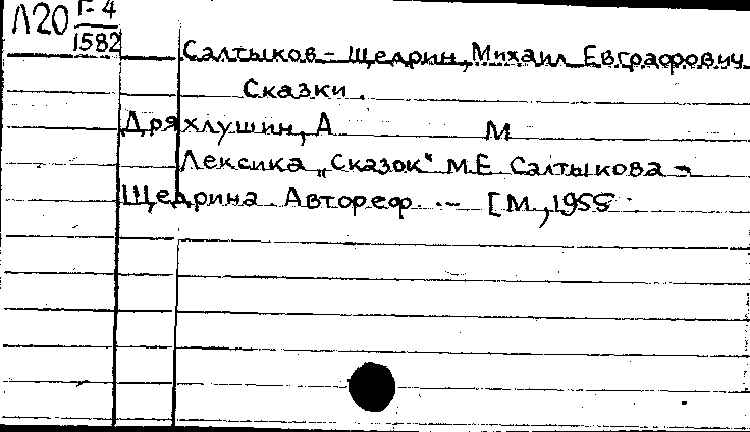 Л20 Г-4
1582
Салтыков-Щедрин, Михаил Евграфович
Сказки.
Дряхлушин, А. М
Лексика „Сказок" М.Е. Салтыкова-
Щедрина. Автореф. -- [М., 1955